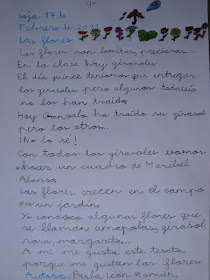 Loja 17 de
Febrero de 2011
Las flores
Las flores son bonitas, preciosas.
En la clase hay girasoles
El día quince teníamos que entregar
los girasoles pero algunos todavía
no los han traído
Hoy Gonzalo ha traído su girasol
pero los otros...
¡No lo sé!
Con todos los girasoles vamos
a hacer un cuadro de Maribel
Alonso
Las flores crecen en el campo
o en un jardín.
Yo conozco algunas flores que
se llaman amapolas, girasol,
rosa, margarita...
A mi me gusta este texto
porque me gustan las flores
Autora: Paula León Román